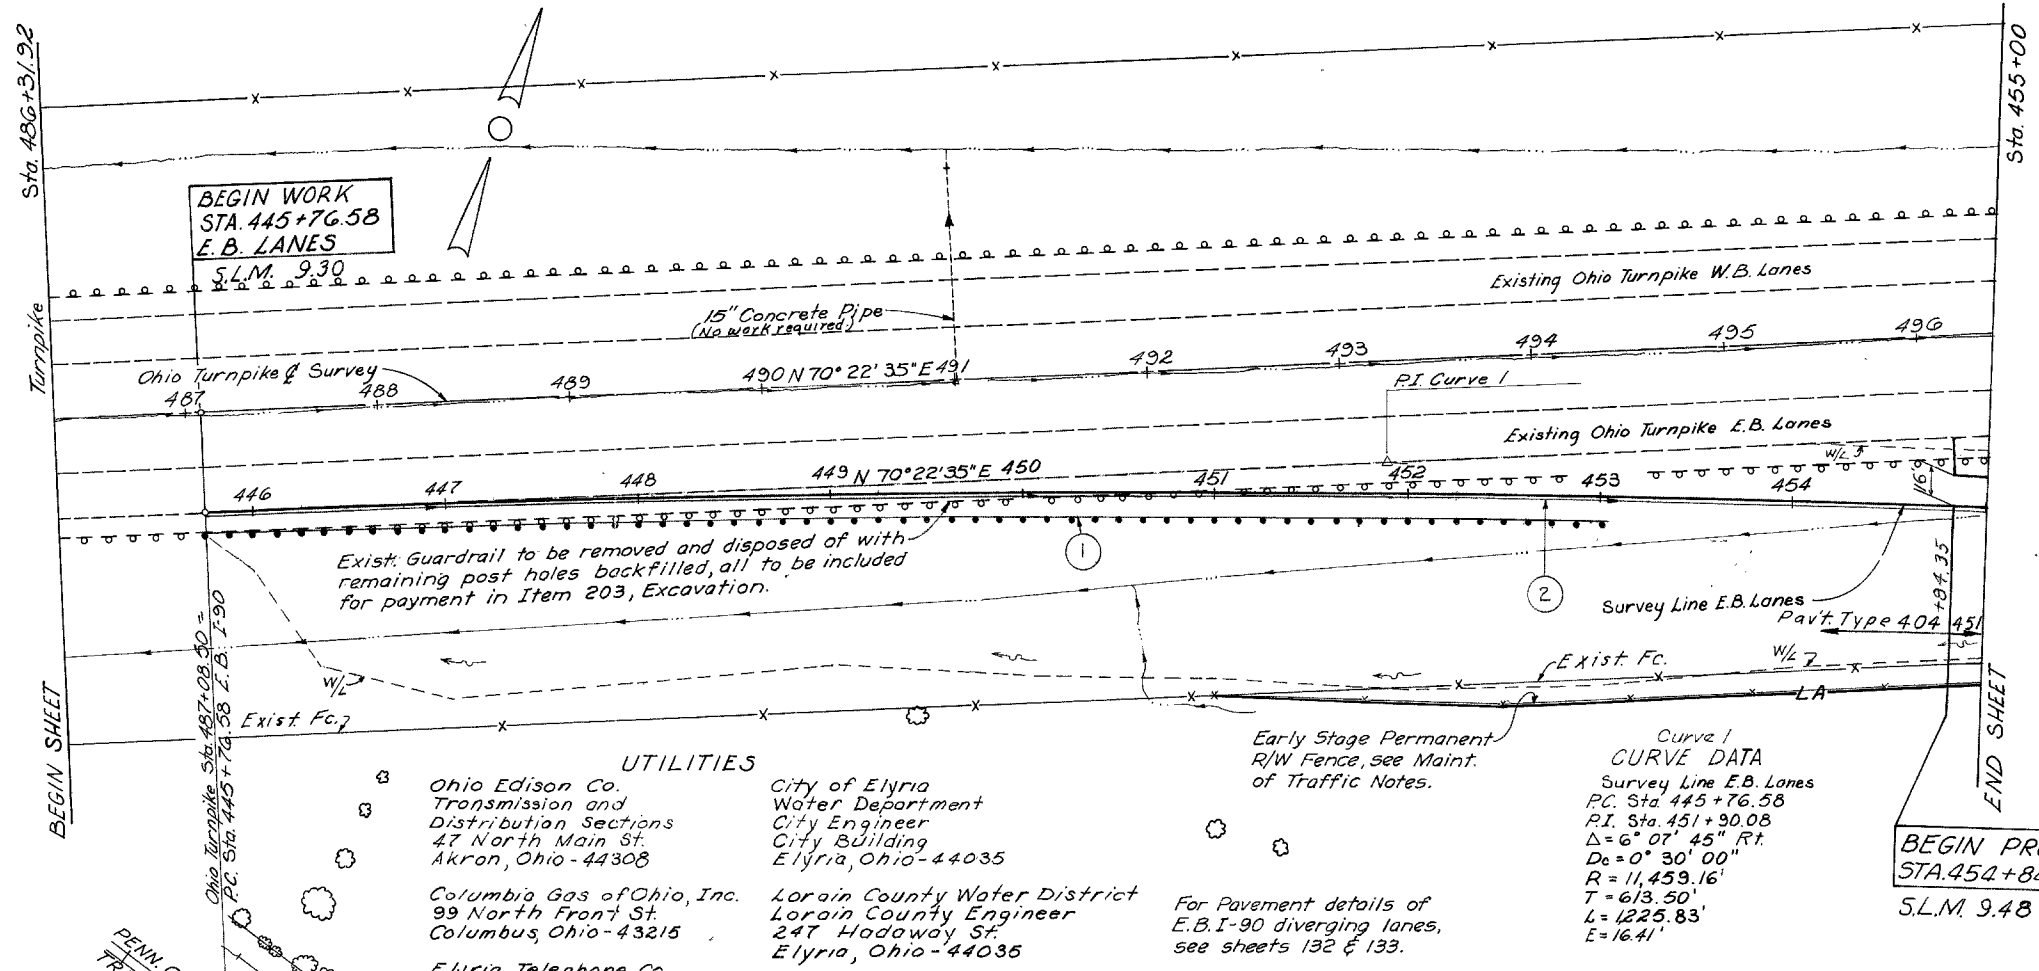 Sta. 486+31.92
Turnpike
BEGIN SHEET
BEGIN WORK
STA. 445+76.58
E.B. LANES
S.L.M. 9.30
Sta. 455+00
Existing Ohio Turnpike W.B. Lanes
15" Concrete Pipe
(No work required)
Ohio Turnpike ℄ Survey
487 488 489 490 N 70° 22' 35" E 491 492 493 494 495 496
P.I. Curve 1
Existing Ohio Turnpike E.B. Lanes
W/L
446 447 448 449 N 70° 22' 35" E 450 451 452 453 454
116.0
Exist. Guardrail to be removed and disposed of with
remaining post holes backfilled, all to be included
for payment in Item 203, Excavation.
1
2
Survey Line E.B. Lanes
+84.35
Pav't. Type 404 451
W/L
Exist. Fc.
W/L
Exist. Fc.
LA
Ohio Turnpike Sta. 487+08.50 =
P.C. Sta. 445+76.58 E.B. I-90
Early Stage Permanent
R/W Fence, see Maint.
of Traffic Notes.
END SHEET
UTILITIES
Ohio Edison Co.
Transmission and
Distribution Sections
47 North Main St.
Akron, Ohio-44308
Columbia Gas of Ohio, Inc.
99 North Front St.
Columbus, Ohio-43215
Elyria Telephone Co.
City of Elyria
Water Department
City Engineer
City Building
Elyria, Ohio-44035
Lorain County Water District
Lorain County Engineer
247 Hadaway St.
Elyria, Ohio-44035
For Pavement details of
E.B. I-90 diverging lanes,
see sheets 132 & 133.
Curve 1
CURVE DATA
Survey Line E.B. Lanes
P.C. Sta. 445+76.58
P.I. Sta. 451+90.08
Δ = 6° 07' 45" Rt.
Dc = 0° 30' 00"
R = 11,459.16'
T = 613.50'
L = 1225.83'
E = 16.41'
BEGIN PRO
STA. 454+84
S.L.M. 9.48
PENN.